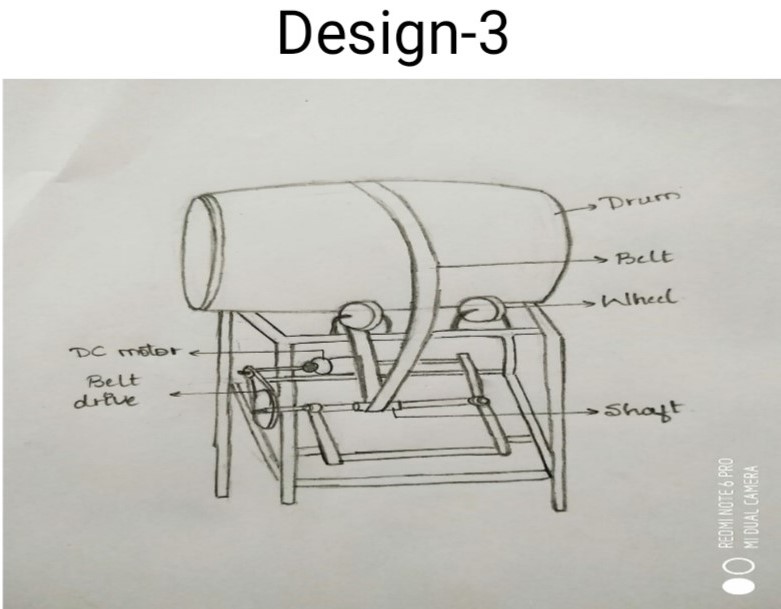 Design-3
Drum
Belt
Wheel
DC motor
Belt
drive
Shaft
REDMI NOTE 6 PRO
MI DUAL CAMERA